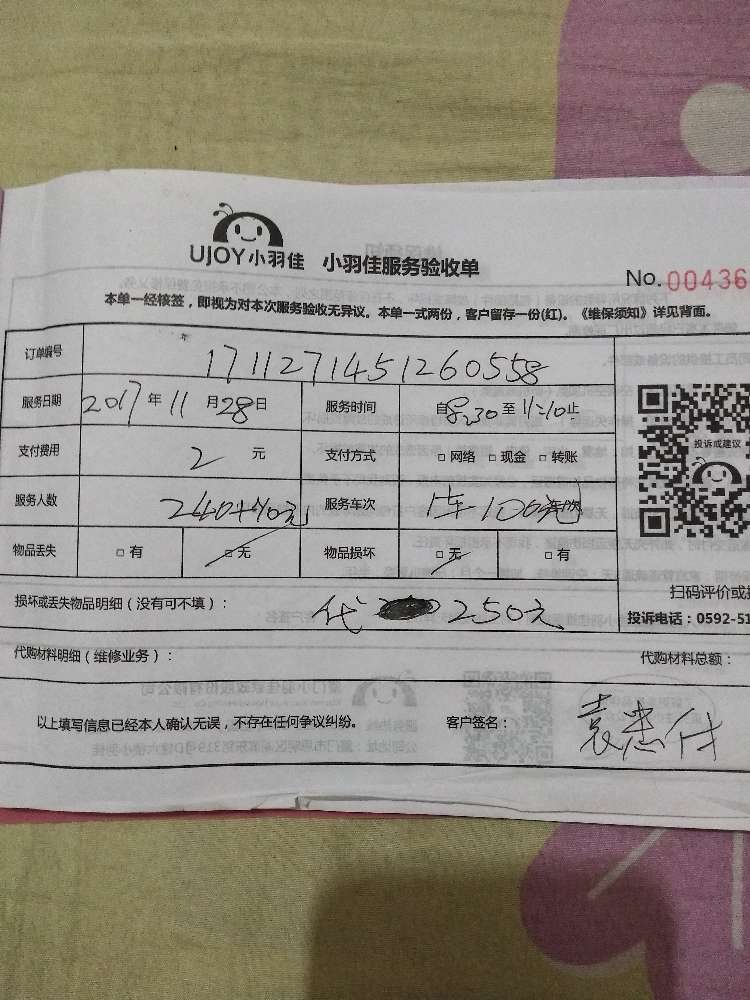 UJOY小羽佳 小羽佳服务验收单
No.00436
本单一经核签，即视为对本次服务验收无异议。本单一式两份，客户留存一份(红)。《维保须知》详见背面。
订单编号 1711271451260558
服务日期 2017年11月28日 服务时间 自8:30至11:10止
支付费用 2 元 支付方式 □网络 □现金 □转账
服务人数 240+10元 服务车次 1车100元
物品丢失 □有 □无 物品损坏 □无 □有
投诉或建议
损坏或丢失物品明细（没有可不填）： 代 250元
扫码评价或
投诉电话：0592-51
代购材料明细（维修业务）： 代购材料总额：
以上填写信息已经本人确认无误，不存在任何争议纠纷。 客户签名： 袁